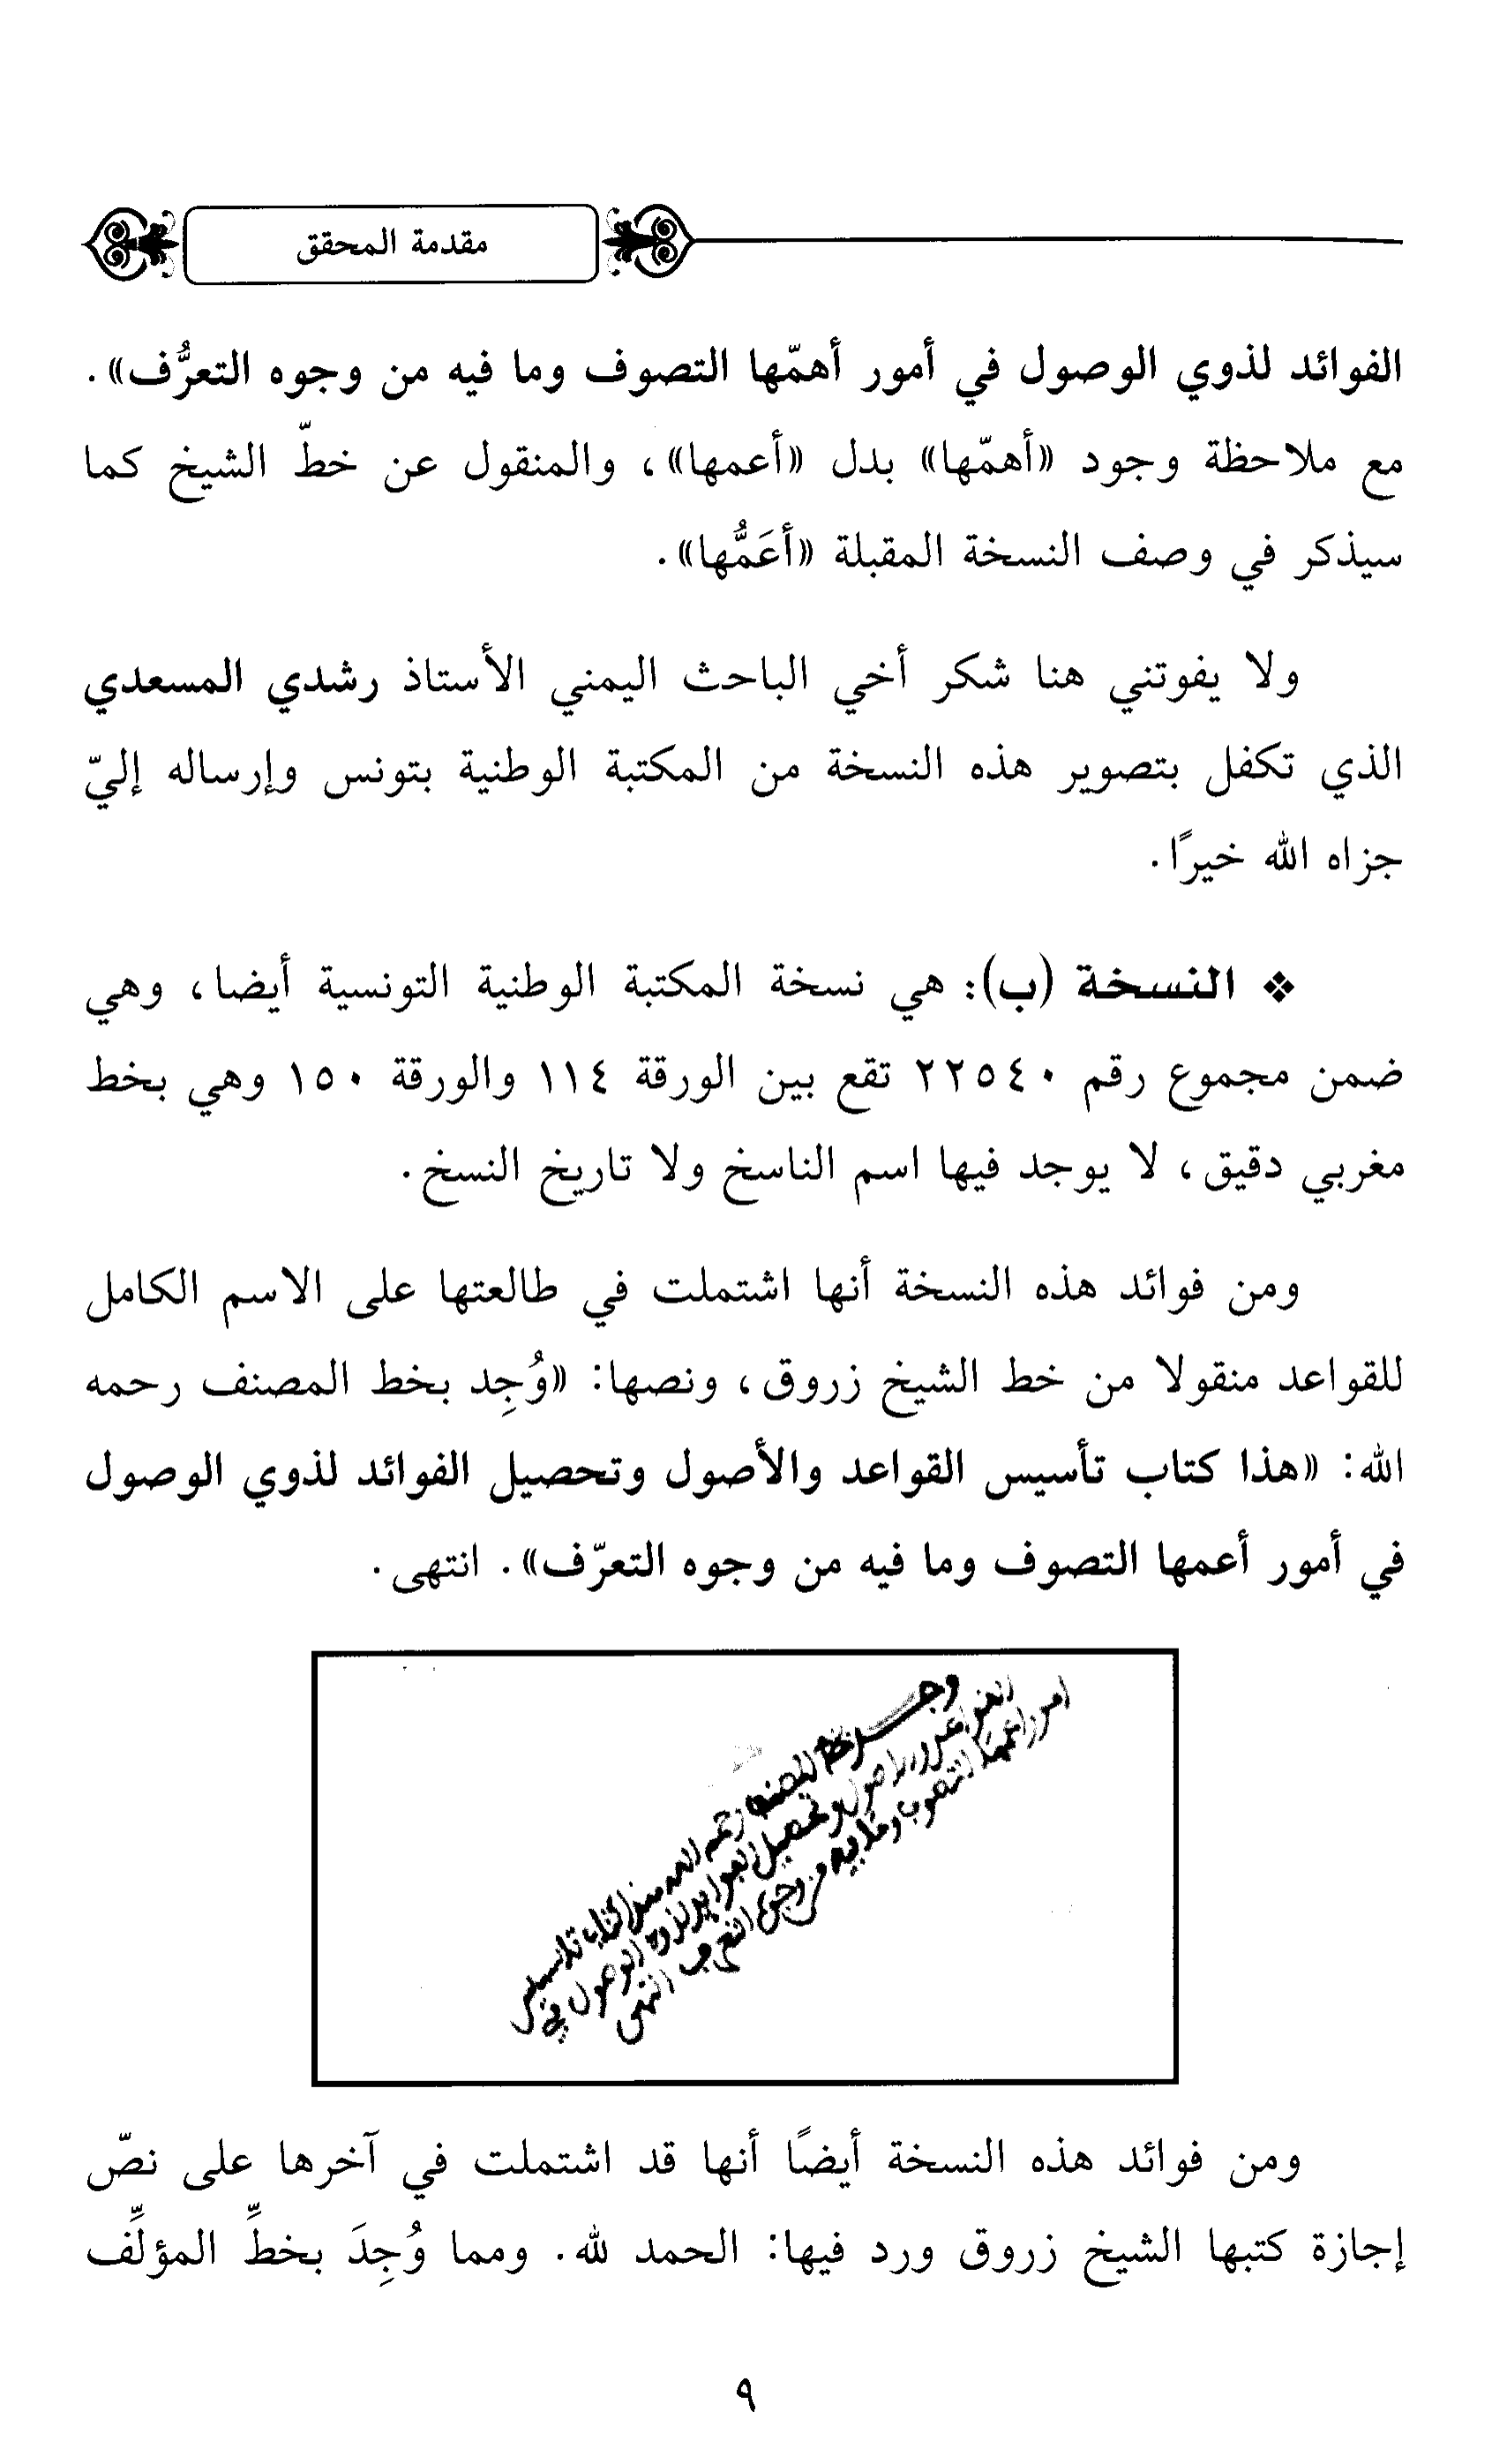 مقدمة المحقق
الفوائد لذوي الوصول في أمور أهمّها التصوف وما فيه من وجوه التعرُّف».
مع ملاحظة وجود «أهمّها» بدل «أعمها»، والمنقول عن خطّ الشيخ كما
سيذكر في وصف النسخة المقبلة «أعَمُّها».
ولا يفوتني هنا شكر أخي الباحث اليمني الأستاذ رشدي المسعدي
الذي تكفل بتصوير هذه النسخة من المكتبة الوطنية بتونس وإرساله إليّ
جزاه الله خيرًا.
❖ النسخة (ب): هي نسخة المكتبة الوطنية التونسية أيضا، وهي
ضمن مجموع رقم ٢٢٥٤٠ تقع بين الورقة ١١٤ والورقة ١٥٠ وهي بخط
مغربي دقيق، لا يوجد فيها اسم الناسخ ولا تاريخ النسخ.
ومن فوائد هذه النسخة أنها اشتملت في طالعتها على الاسم الكامل
للقواعد منقولا من خط الشيخ زروق، ونصها: «وُجِد بخط المصنف رحمه
الله: «هذا كتاب تأسيس القواعد والأصول وتحصيل الفوائد لذوي الوصول
في أمور أعمها التصوف وما فيه من وجوه التعرّف». انتهى.
وجد بخط المصنف رحمه الله هذا كتاب تأسيس
القواعد والاصول وتحصيل الفوائد لذوي الوصول في
امور اعمها التصوف وما فيه من وجوه التعرف انتهى
ومن فوائد هذه النسخة أيضًا أنها قد اشتملت في آخرها على نصّ
إجازة كتبها الشيخ زروق ورد فيها: الحمد لله. ومما وُجِدَ بخطِّ المؤلِّف
٩